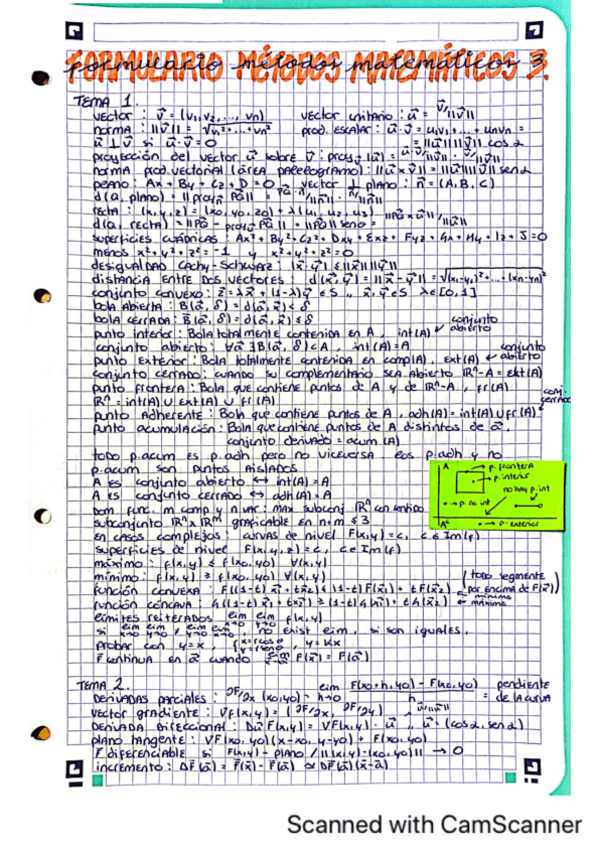 FORMULARIO MÉTODOS MATEMÁTICOS 3.
formulario métodos matemáticos 3.
TEMA 1.
vector : v⃗ = (v₁, v₂, ..., vn) vector unitario : u⃗ = v⃗/||v⃗||
norma : ||v⃗|| = √v₁²+...+vn² prod. escalar : u⃗·v⃗ = u₁v₁+...+unvn =
u⃗ ⊥ v⃗ si u⃗·v⃗ = 0 = ||u⃗|| ||v⃗|| cos α
proyección del vector u⃗ sobre v⃗ : proy
norma prod. vectorial (área paralelogramo) : ||u⃗ x v⃗|| = ||u⃗|| ||v⃗|| sen α
plano : Ax + By + Cz + D = 0 vector ⊥ plano : n⃗ = (A, B, C)
d(Q, plano) =
recta : (x, y, z) = (x0, y0, z0) + λ(u₁, u₂, u₃)
d(Q, recta) =
superficies cuádricas : Ax² + By² + Cz² + Dxy + Exz + Fyz + Gx + Hy + Iz + J = 0
menos x²+y²+z² = -1 y x²+y²+z² = 0
desigualdad Cachy-Schwarz : |x⃗·y⃗| ≤ ||x⃗|| ||y⃗||
distancia entre dos vectores : d(x⃗, y⃗) = ||x⃗ - y⃗|| = √(x₁-y₁)²+...+(xn-yn)²
conjunto convexo : z⃗ = λx⃗ + (1-λ)y⃗ ∈ S ,, x⃗, y⃗ ∈ S λ ∈ [0,1]
bola abierta : B(a⃗, δ) = d(a⃗, x⃗) < δ
bola cerrada : B̄(a⃗, δ) = d(a⃗, x⃗) ≤ δ
punto interior : Bola totalmente contenida en A , int(A) ↙ conjunto abierto
conjunto abierto : ∀a⃗ ∃B(a⃗, δ) ⊂ A , int(A) = A
punto exterior : Bola totalmente contenida en comp(A) , ext(A) ↙ conjunto abierto
conjunto cerrado : cuando su complementario sea abierto ℝⁿ-A = ext(A)
punto frontera : Bola que contiene puntos de A y de ℝⁿ-A , fr(A)
ℝⁿ = int(A) ∪ ext(A) ∪ fr(A) conj. cerrado
punto adherente : Bola que contiene puntos de A , adh(A) = int(A) ∪ fr(A)
punto acumulación : Bola que contiene puntos de A distintos de a⃗,
conjunto derivado = acum (A)
todo p.acum es p.adh pero no viceversa. Los p.adh y no
p.acum son puntos aislados
A es conjunto abierto ↔ int(A) = A
A es conjunto cerrado ↔ adh(A) = A
A p. frontera
p. interior
no hay p. int
p. no int
p. exterior
Dom func. m comp y n var : max subconj. ℝⁿ con sentido
subconjunto ℝⁿ x ℝᵐ graficable en n+m ≤ 3
en casos complejos : curvas de nivel F(x,y) = c, c ∈ Im(f)
superficies de nivel F(x,y,z) = c, c ∈ Im(f)
máximo : f(x,y) ≤ f(x0,y0) ∀(x,y)
mínimo : f(x,y) ≥ f(x0,y0) ∀(x,y)
función convexa : F((1-t)x⃗₁ + tx⃗₂) ≤ (1-t)F(x⃗₁) + tF(x⃗₂) (todo segmento por encima de F(x⃗)) ← mínimo
función cóncava : h((1-t)x⃗₁ + tx⃗₂) ≥ (1-t)h(x⃗₁) + th(x⃗₂) ← máximo
límites reiterados : lim lim f(x,y)
si lim lim ≠ lim lim , no exist lim, si son iguales,
probar con y = x , , y = Kx
F continua en a⃗ cuando lim F(x⃗) = F(a⃗)
TEMA 2.
derivadas parciales : ∂F/∂x (x0,y0) = lim h→0 F(x0+h, y0) - F(x0,y0) / h = pendiente de la curva
vector gradiente : ∇f(x,y) = (∂F/∂x, ∂F/∂y)
derivada direccional : Du⃗ F(x,y) = ∇F(x,y) · u⃗ , u⃗ = (cos α, sen α)
plano tangente : ∇F(x0,y0)(x-x0, y-y0) + F(x0,y0)
F diferenciable si F(x,y) - plano / ||(x,y)-(x0,y0)|| → 0
incremento : ΔF(a⃗) = F⃗(x⃗) - F⃗(a⃗) ≈ DF⃗(a⃗)(x⃗-a⃗)
Scanned with CamScanner